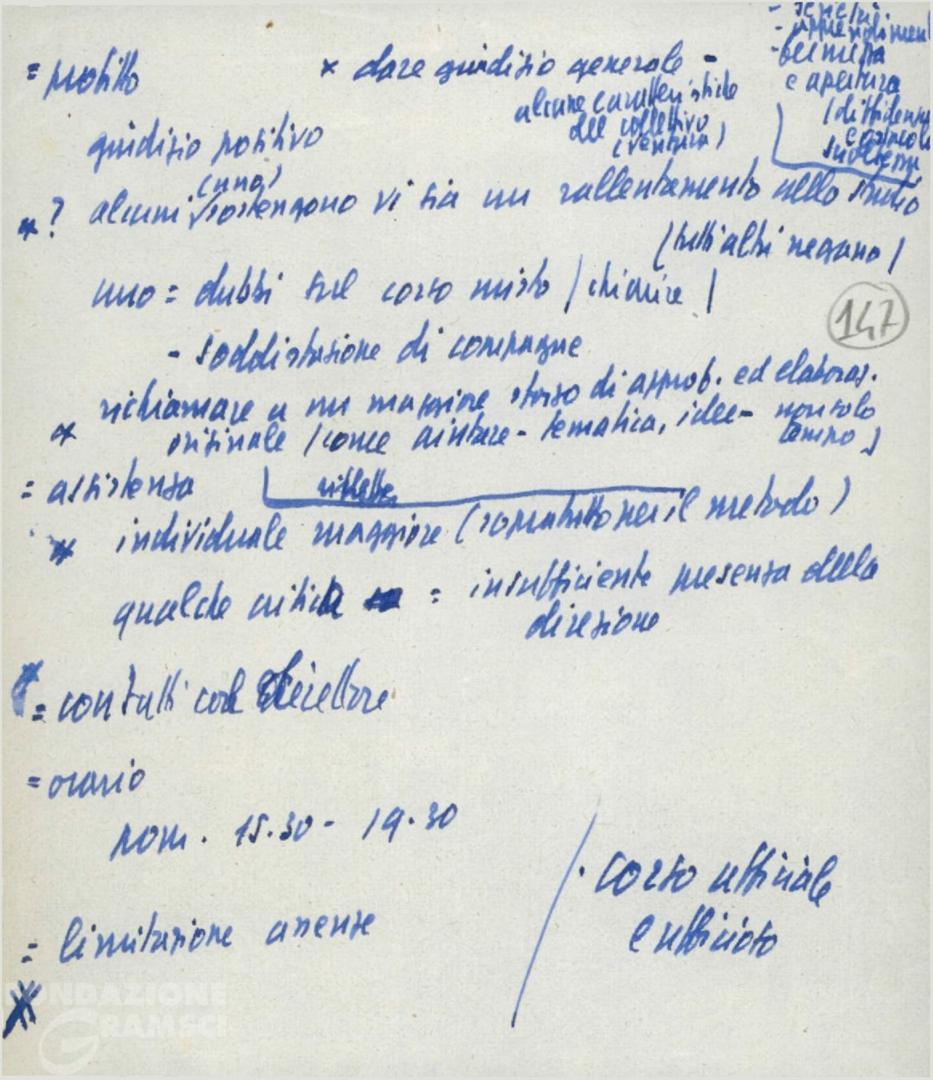 = profitto
× dare giudizio generale -
alcune caratteristiche
del collettivo
- serietà
e apertura
(diffidenza
giudizio positivo
(uno)
*? alcuni sostengono vi sia un rallentamento nello studio
(tutti altri negano)
uno = dubbi sul corso misto (chiarire)
147
- soddisfazione di compagne
* richiamare a un maggiore sforzo di approf. ed elaboraz.
originale (come aiutare - tematica, idee - non solo
tempo)
= assistenza
riflettere
* individuale maggiore (soprattutto per il metodo)
qualche critica = insufficiente presenza della
direzione
= contatti col
= orario
pom. 15.30 - 19.30
· corso ufficiale
e ufficioso
= limitazione assenze
FONDAZIONE
GRAMSCI